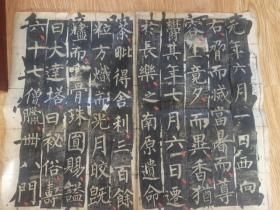 元年六月一日西向
右脅而滅當暑而尊
容竟夕而異香猶
鬱其年七月六日遷
於長樂之南原遺命
荼毗得舍利三百餘
粒方熾而光月皎既
燼而靈骨珠圓賜謚
曰大達塔曰秘俗壽
六十七僧臘卌八門